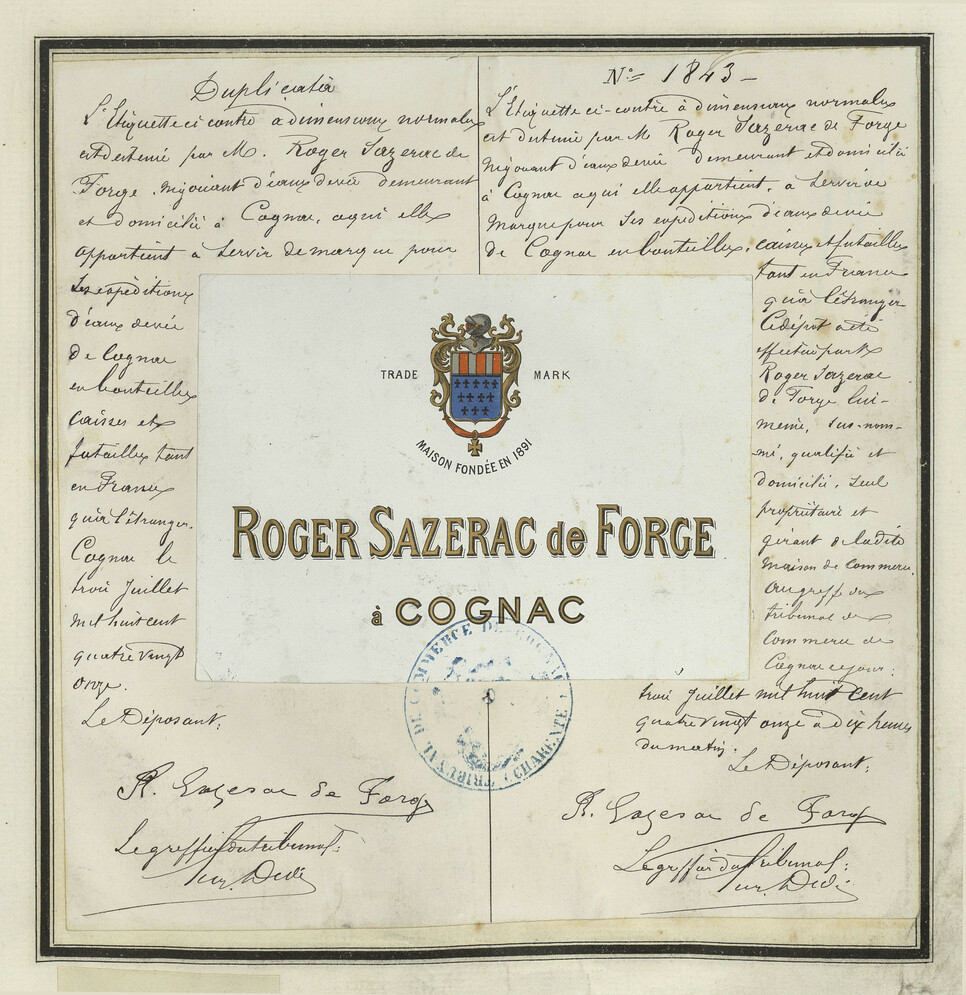 Duplicata
L'Etiquette ci contre à dimensions normales
est destinée par M. Roger Sazerac de
Forge, négociant d'eaux de vie demeurant
et domicilié à Cognac, à qui elle
appartient à servir de marque pour
les expéditions
d'eaux de vie
de Cognac
en bouteilles
caisses et
futailles tant
en France
qu'à l'étranger.
Cognac le
trois Juillet
mil huit cent
quatre vingt
onze.
Le Déposant:
R. Sazerac de Forge
Le greffier du tribunal:
N° 1843 -
L'Etiquette ci-contre à dimensions normales
est destinée par M Roger Sazerac de Forge
négociant d'eaux de vie demeurant et domicilié
à Cognac à qui elle appartient, à servir de
marque pour ses expéditions d'eaux de vie
de Cognac en bouteilles, caisses et futailles
tant en France
qu'à l'étranger
Ce dépôt a été
effectué par M
Roger Sazerac
de Forge lui-
même, sus-nom-
mé, qualifié et
domicilié, seul
propriétaire et
gérant de la dite
maison de commerce
au greffe du
tribunal de
Commerce de
Cognac ce jour:
trois Juillet mil huit cent
quatre vingt onze à dix heures
du matin.
Le Déposant:
R. Sazerac de Forge
Le greffier du tribunal:
TRADE MARK
MAISON FONDÉE EN 1891
ROGER SAZERAC de FORGE
à COGNAC
TRIBUNAL DE COMMERCE DE
CHARENTE